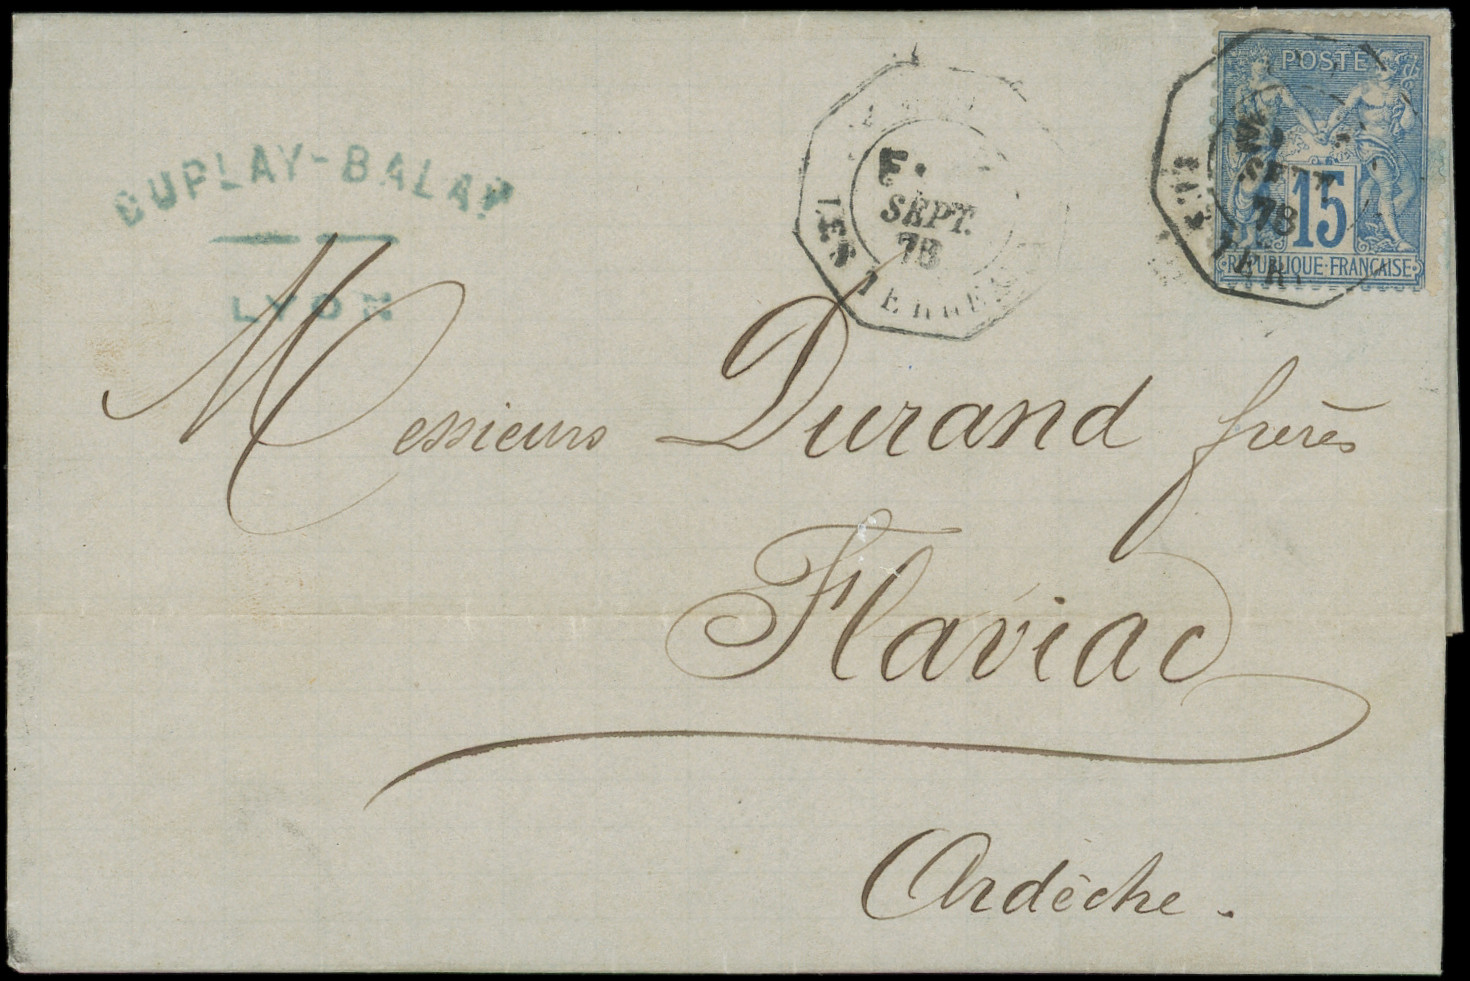 DUPLAY-BALAP
LYON
E.
SEPT.
78
LES TERREA
POSTE
SEPT.
78
15
REPUBLIQUE FRANÇAISE
Messieurs Durand frères
Flaviac
Ardèche.